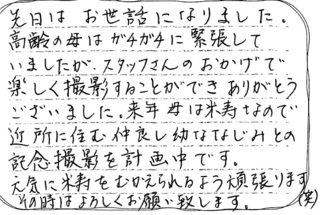 先日は お世話になりました。
高齢の母はガチガチに緊張して
いましたが、スタッフさんのおかげで
楽しく撮影することができありがとう
ございました。来年母は米寿なので
近所に住む仲良し幼ななじみとの
記念撮影を計画中です。
元気に米寿をむかえられるよう頑張ります(笑)
その時はよろしくお願い致します。